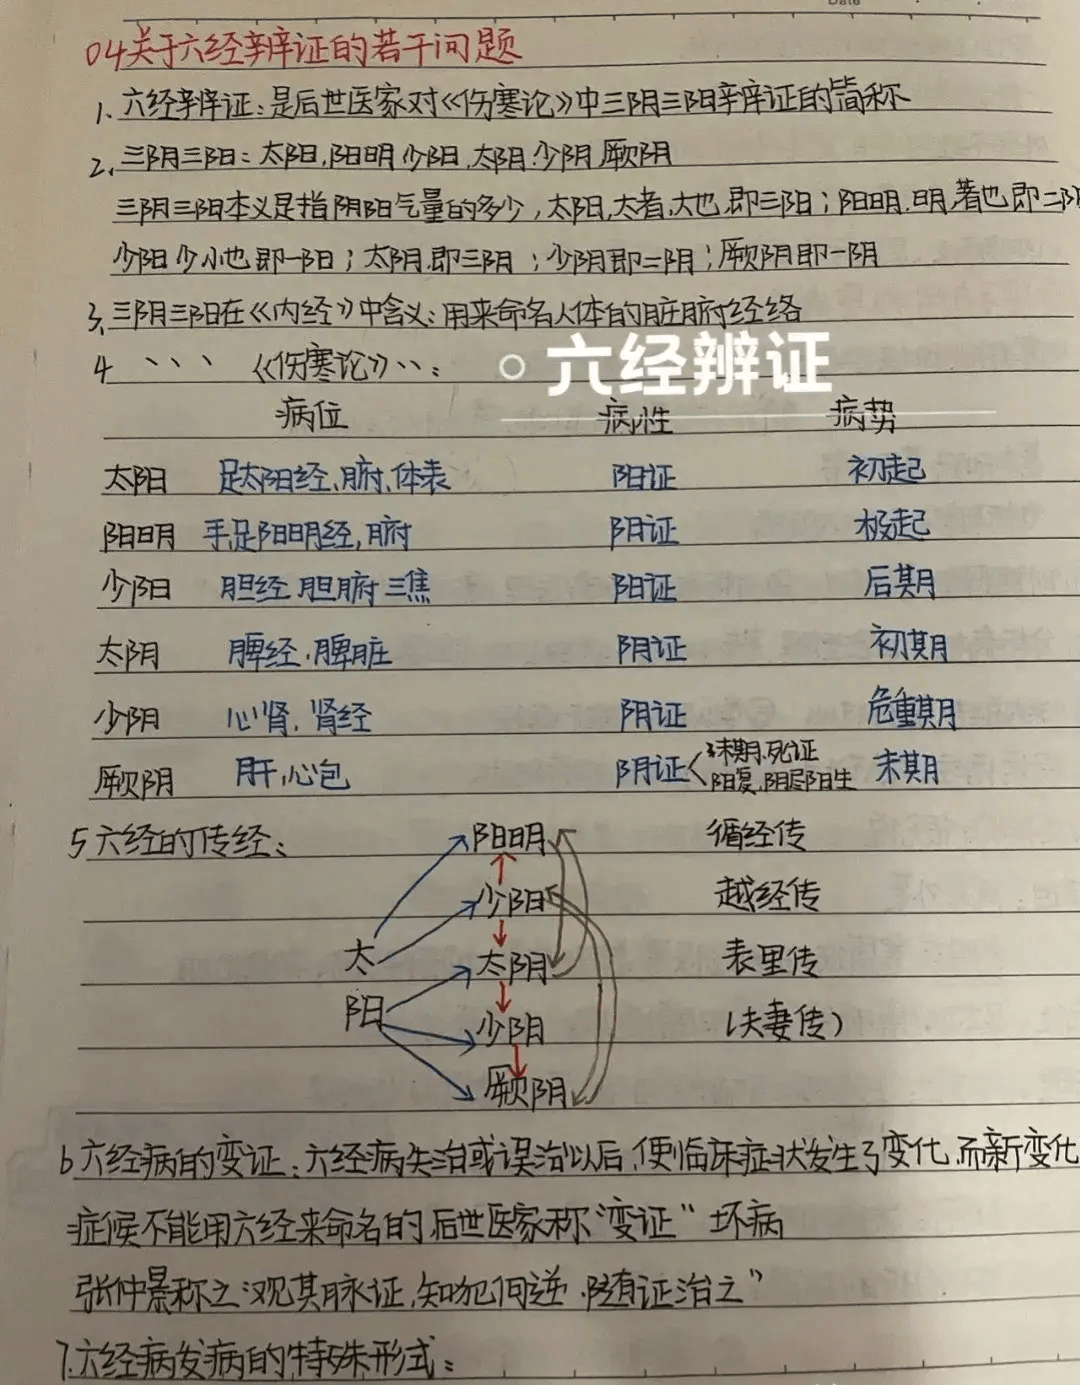 Date
04关于六经辨证的若干问题
1、六经辨证：是后世医家对《伤寒论》中三阴三阳辨证的简称
2、三阴三阳：太阳,阳明,少阳,太阴.少阴.厥阴
三阴三阳本义是指阴阳气量的多少，太阳,太者,大也,即三阳；阳明.明,著也即二阳
少阳少小也即一阳；太阴.即三阴；少阴即二阴；厥阴即一阴
3、三阴三阳在《内经》中含义：用来命名人体的脏腑经络
4 、、、《伤寒论》、、：
六经辨证
病位 病性 病势
太阳 足太阳经、腑、体表 阳证 初起
阳明 手足阳明经,腑 阳证 极起
少阳 胆经 胆腑 三焦 阳证 后期
太阴 脾经.脾脏 阴证 初期
少阴 心肾.肾经 阴证 危重期
厥阴 肝.心包 阴证 末期.死证 末期
阳复.阴尽阳生
5六经的传经：
阳明 循经传
少阳 越经传
太阳
太阴 表里传
少阴 (夫妻传)
厥阴
6六经病的变证：六经病失治或误治以后,使临床症状发生了变化,而新变化
症候不能用六经来命名的后世医家称“变证”坏病
张仲景称之“观其脉证,知犯何逆.随证治之”
7.六经病发病的特殊形式：